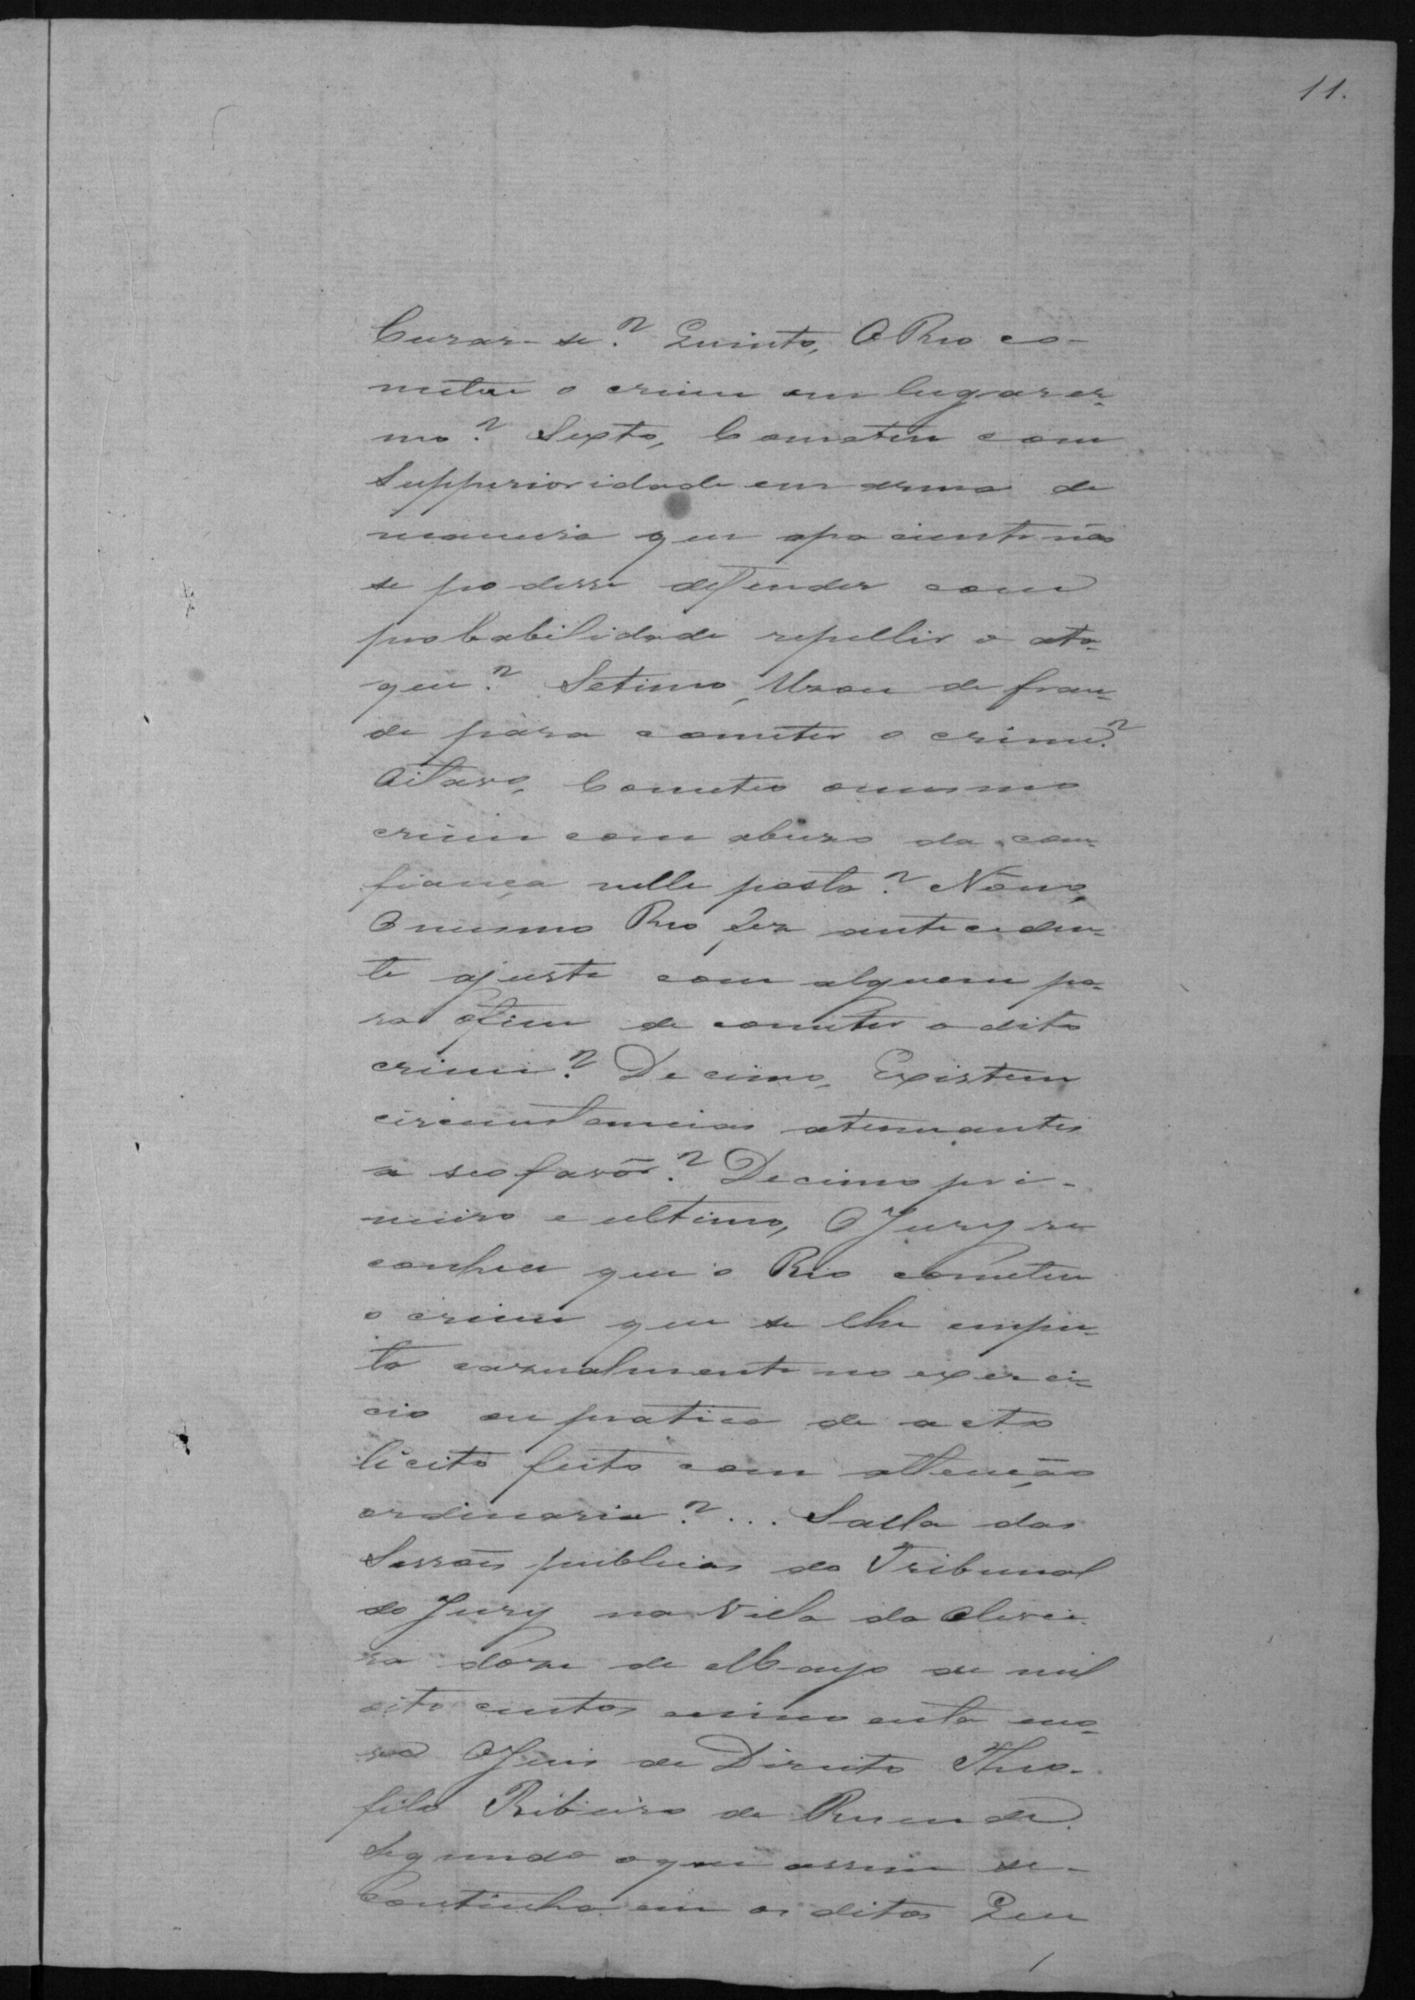 11.
Curar-se? Quinto, O Reo co-
meteu o crime em lugar er-
mo? Sexto, Cometeu com
Supperioridade em arma de
maneira que apaciente não
se podesse defender com
probabilidade repellir o ata-
que? Setimo, Uzou de frau-
de para cometer o crime?
Oitavo, Cometeo omesmo
crime com abuzo da con-
fiança nelle posta? Nono,
O mesmo Reo fez anteceden-
te ajuste com alguem pa-
ra ofim de cometer o dito
crime? Decimo, Existem
circunstancias atenuantes
a seo favôr? Decimo pri-
meiro e ultimo, O Jury re
conhece que o Reo cometeu
o crime que se lhe impu-
ta cazualmente no exerci-
cio ou pratica de acto
licito feito com attenção
ordinaria?... Salla das
Sessões publicas do Tribunal
do Jury na Villa da Olivei-
ra doze de Mayo de mil
oito centos e cincoenta e no-
ve O Juis de Direito Theo-
filo Ribeiro de Rezende.
Segundo oque assim se-
continha em os ditos Que